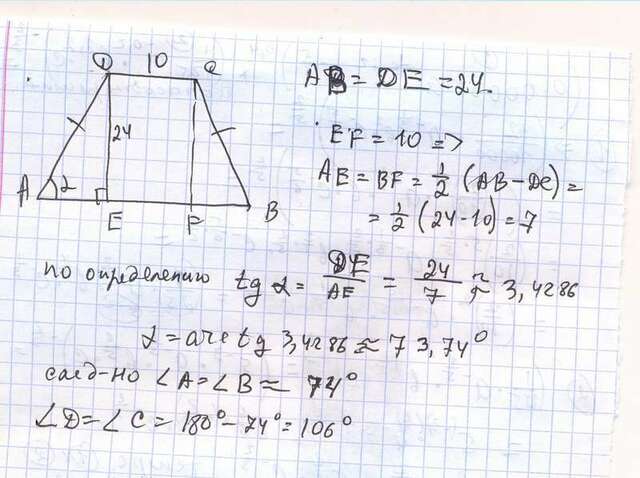 D 10 C
24
A α E F B
AB = DE = 24.
EF = 10 =>
AE = BF = 1/2 (AB - DC) =
= 1/2 (24 - 10) = 7
по определению tg α = DE/AE = 24/7 ≈ 3,4286
α = arctg 3,4286 ≈ 73,74°
след-но ∠A = ∠B ≈ 74°
∠D = ∠C = 180° - 74° = 106°